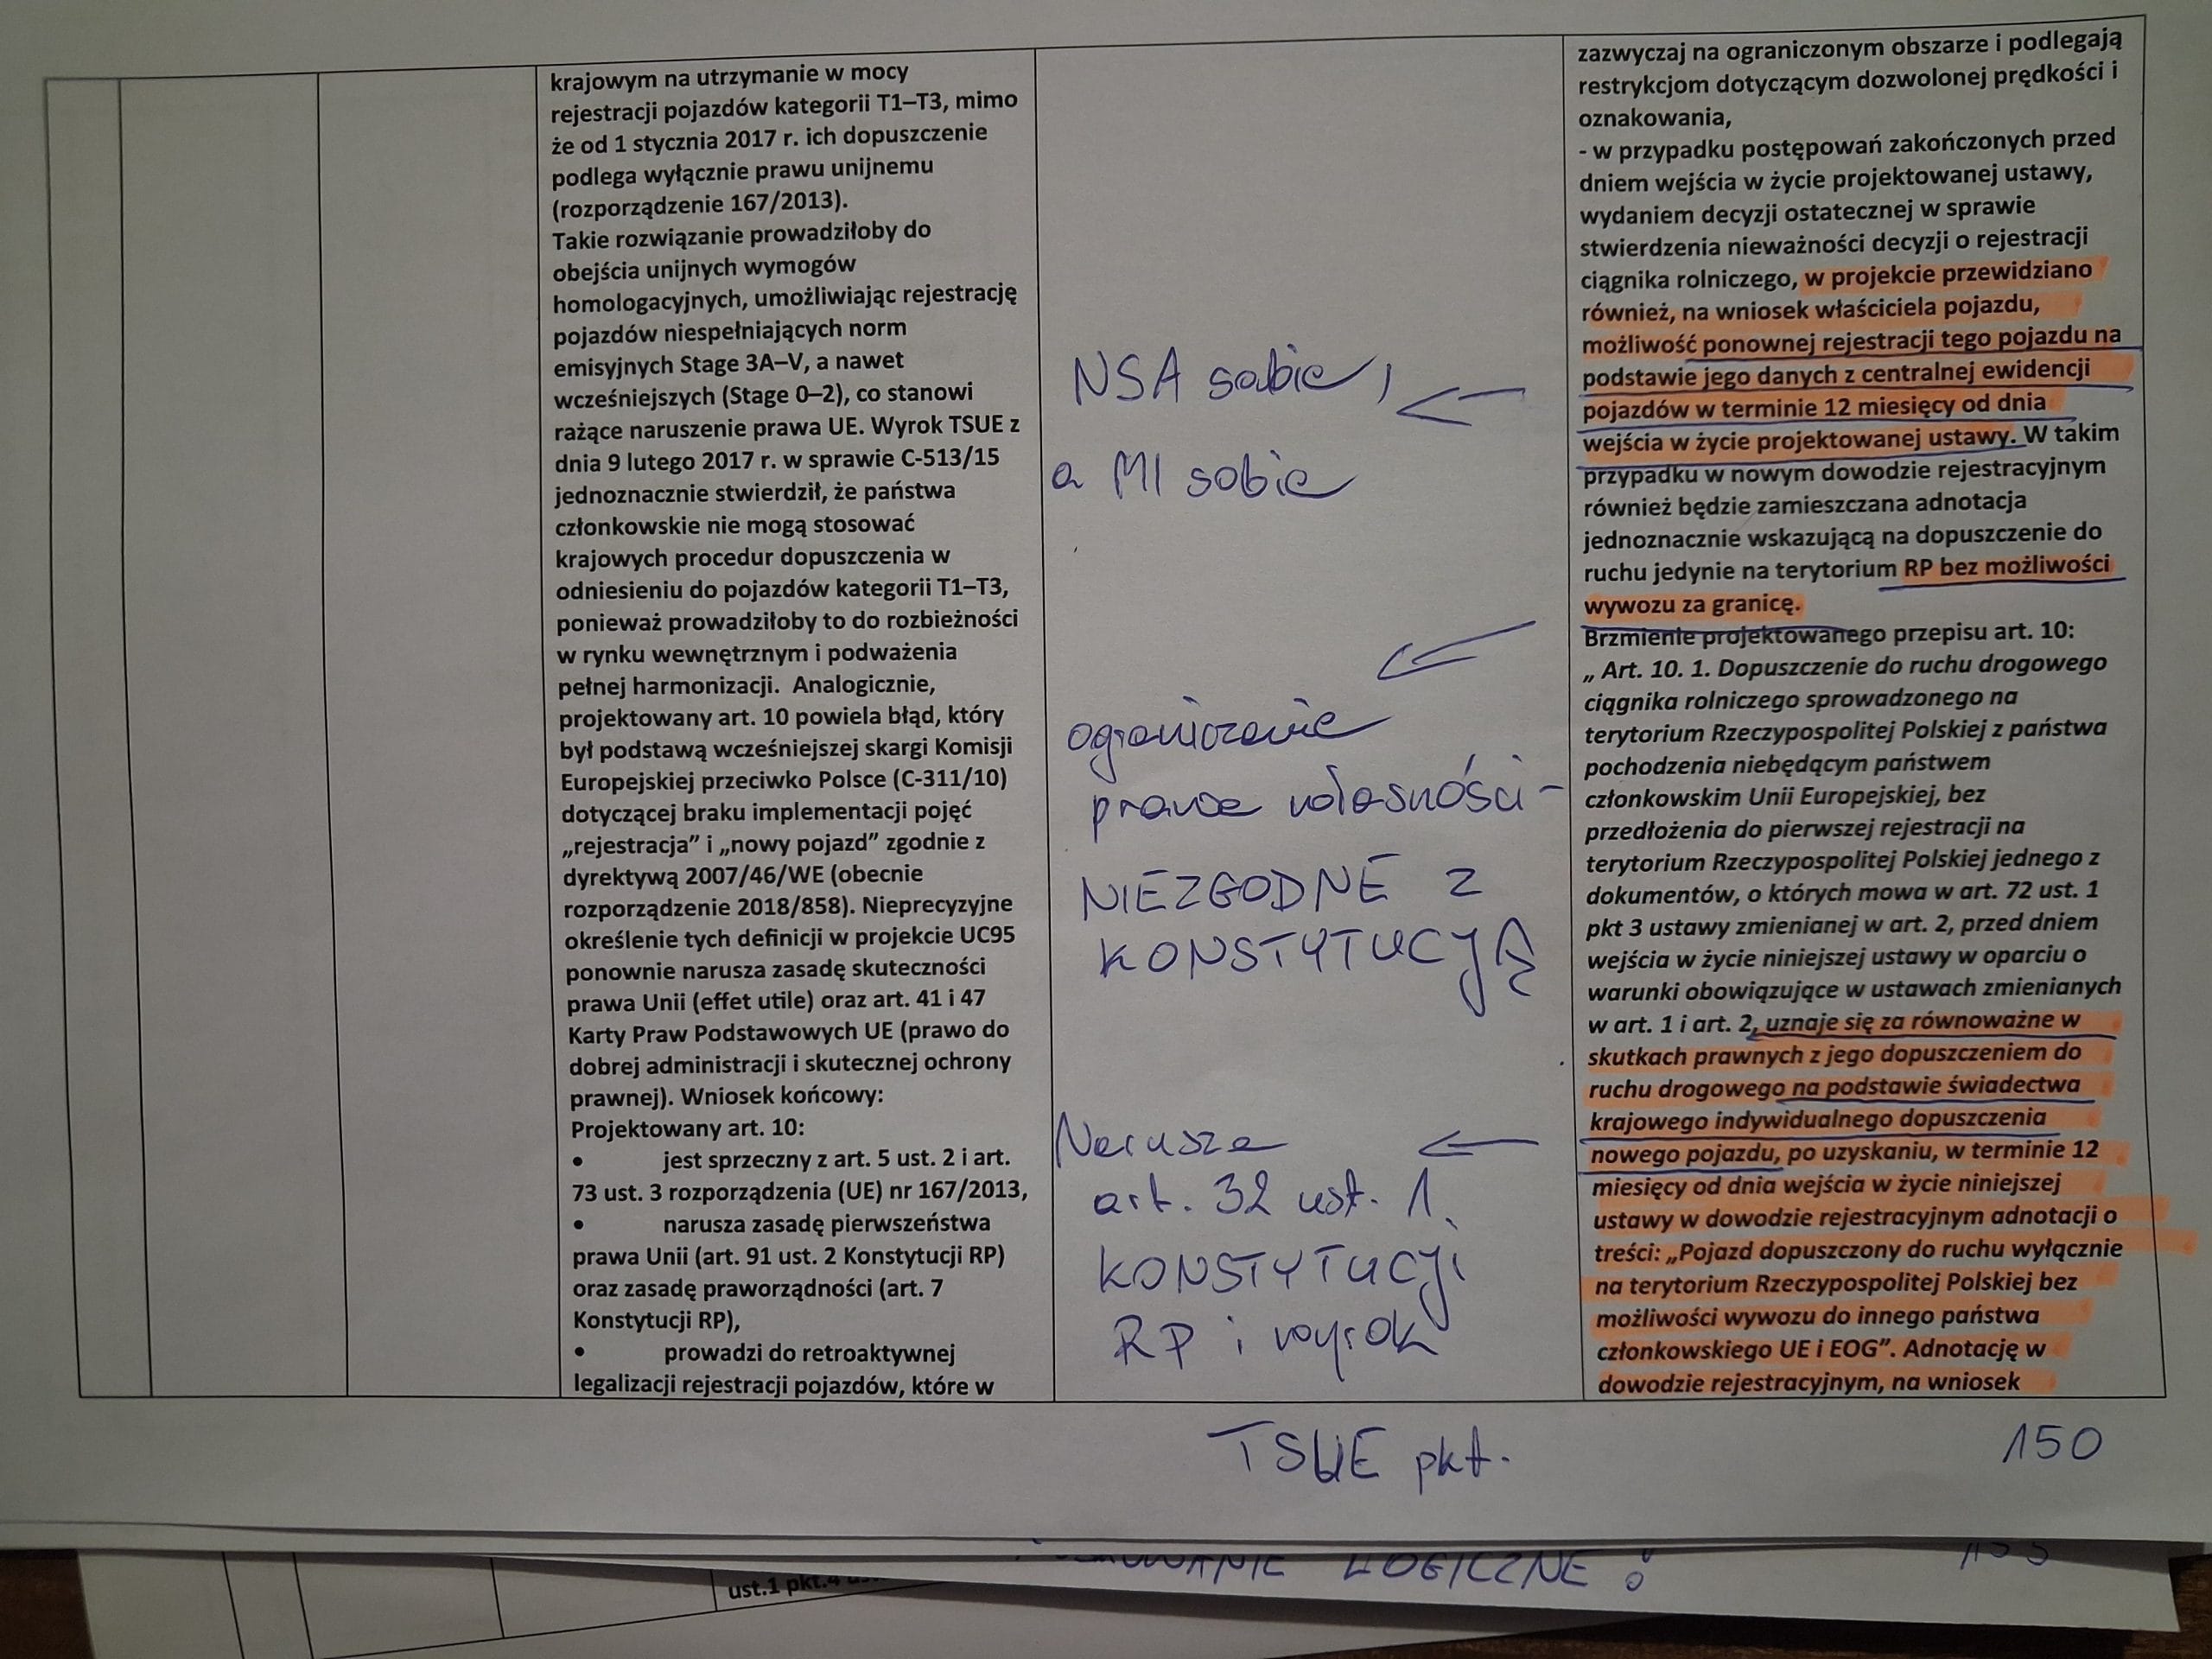 krajowym na utrzymanie w mocy
rejestracji pojazdów kategorii T1–T3, mimo
że od 1 stycznia 2017 r. ich dopuszczenie
podlega wyłącznie prawu unijnemu
(rozporządzenie 167/2013).
Takie rozwiązanie prowadziłoby do
obejścia unijnych wymogów
homologacyjnych, umożliwiając rejestrację
pojazdów niespełniających norm
emisyjnych Stage 3A–V, a nawet
wcześniejszych (Stage 0–2), co stanowi
rażące naruszenie prawa UE. Wyrok TSUE z
dnia 9 lutego 2017 r. w sprawie C-513/15
jednoznacznie stwierdził, że państwa
członkowskie nie mogą stosować
krajowych procedur dopuszczenia w
odniesieniu do pojazdów kategorii T1–T3,
ponieważ prowadziłoby to do rozbieżności
w rynku wewnętrznym i podważenia
pełnej harmonizacji. Analogicznie,
projektowany art. 10 powiela błąd, który
był podstawą wcześniejszej skargi Komisji
Europejskiej przeciwko Polsce (C-311/10)
dotyczącej braku implementacji pojęć
„rejestracja” i „nowy pojazd” zgodnie z
dyrektywą 2007/46/WE (obecnie
rozporządzenie 2018/858). Nieprecyzyjne
określenie tych definicji w projekcie UC95
ponownie narusza zasadę skuteczności
prawa Unii (effet utile) oraz art. 41 i 47
Karty Praw Podstawowych UE (prawo do
dobrej administracji i skutecznej ochrony
prawnej). Wniosek końcowy:
Projektowany art. 10:
• jest sprzeczny z art. 5 ust. 2 i art.
73 ust. 3 rozporządzenia (UE) nr 167/2013,
• narusza zasadę pierwszeństwa
prawa Unii (art. 91 ust. 2 Konstytucji RP)
oraz zasadę praworządności (art. 7
Konstytucji RP),
• prowadzi do retroaktywnej
legalizacji rejestracji pojazdów, które w
NSA sobie,
a MI sobie
ograniczenie
prawa własności -
NIEZGODNE Z
KONSTYTUCJĄ
Narusza
art. 32 ust. 1.
KONSTYTUCJI
RP i wyrok
TSUE pkt.
zazwyczaj na ograniczonym obszarze i podlegają
restrykcjom dotyczącym dozwolonej prędkości i
oznakowania,
- w przypadku postępowań zakończonych przed
dniem wejścia w życie projektowanej ustawy,
wydaniem decyzji ostatecznej w sprawie
stwierdzenia nieważności decyzji o rejestracji
ciągnika rolniczego, w projekcie przewidziano
również, na wniosek właściciela pojazdu,
możliwość ponownej rejestracji tego pojazdu na
podstawie jego danych z centralnej ewidencji
pojazdów w terminie 12 miesięcy od dnia
wejścia w życie projektowanej ustawy. W takim
przypadku w nowym dowodzie rejestracyjnym
również będzie zamieszczana adnotacja
jednoznacznie wskazującą na dopuszczenie do
ruchu jedynie na terytorium RP bez możliwości
wywozu za granicę.
Brzmienie projektowanego przepisu art. 10:
„ Art. 10. 1. Dopuszczenie do ruchu drogowego
ciągnika rolniczego sprowadzonego na
terytorium Rzeczypospolitej Polskiej z państwa
pochodzenia niebędącym państwem
członkowskim Unii Europejskiej, bez
przedłożenia do pierwszej rejestracji na
terytorium Rzeczypospolitej Polskiej jednego z
dokumentów, o których mowa w art. 72 ust. 1
pkt 3 ustawy zmienianej w art. 2, przed dniem
wejścia w życie niniejszej ustawy w oparciu o
warunki obowiązujące w ustawach zmienianych
w art. 1 i art. 2, uznaje się za równoważne w
skutkach prawnych z jego dopuszczeniem do
ruchu drogowego na podstawie świadectwa
krajowego indywidualnego dopuszczenia
nowego pojazdu, po uzyskaniu, w terminie 12
miesięcy od dnia wejścia w życie niniejszej
ustawy w dowodzie rejestracyjnym adnotacji o
treści: „Pojazd dopuszczony do ruchu wyłącznie
na terytorium Rzeczypospolitej Polskiej bez
możliwości wywozu do innego państwa
członkowskiego UE i EOG”. Adnotację w
dowodzie rejestracyjnym, na wniosek
150
ust.1 pkt.4